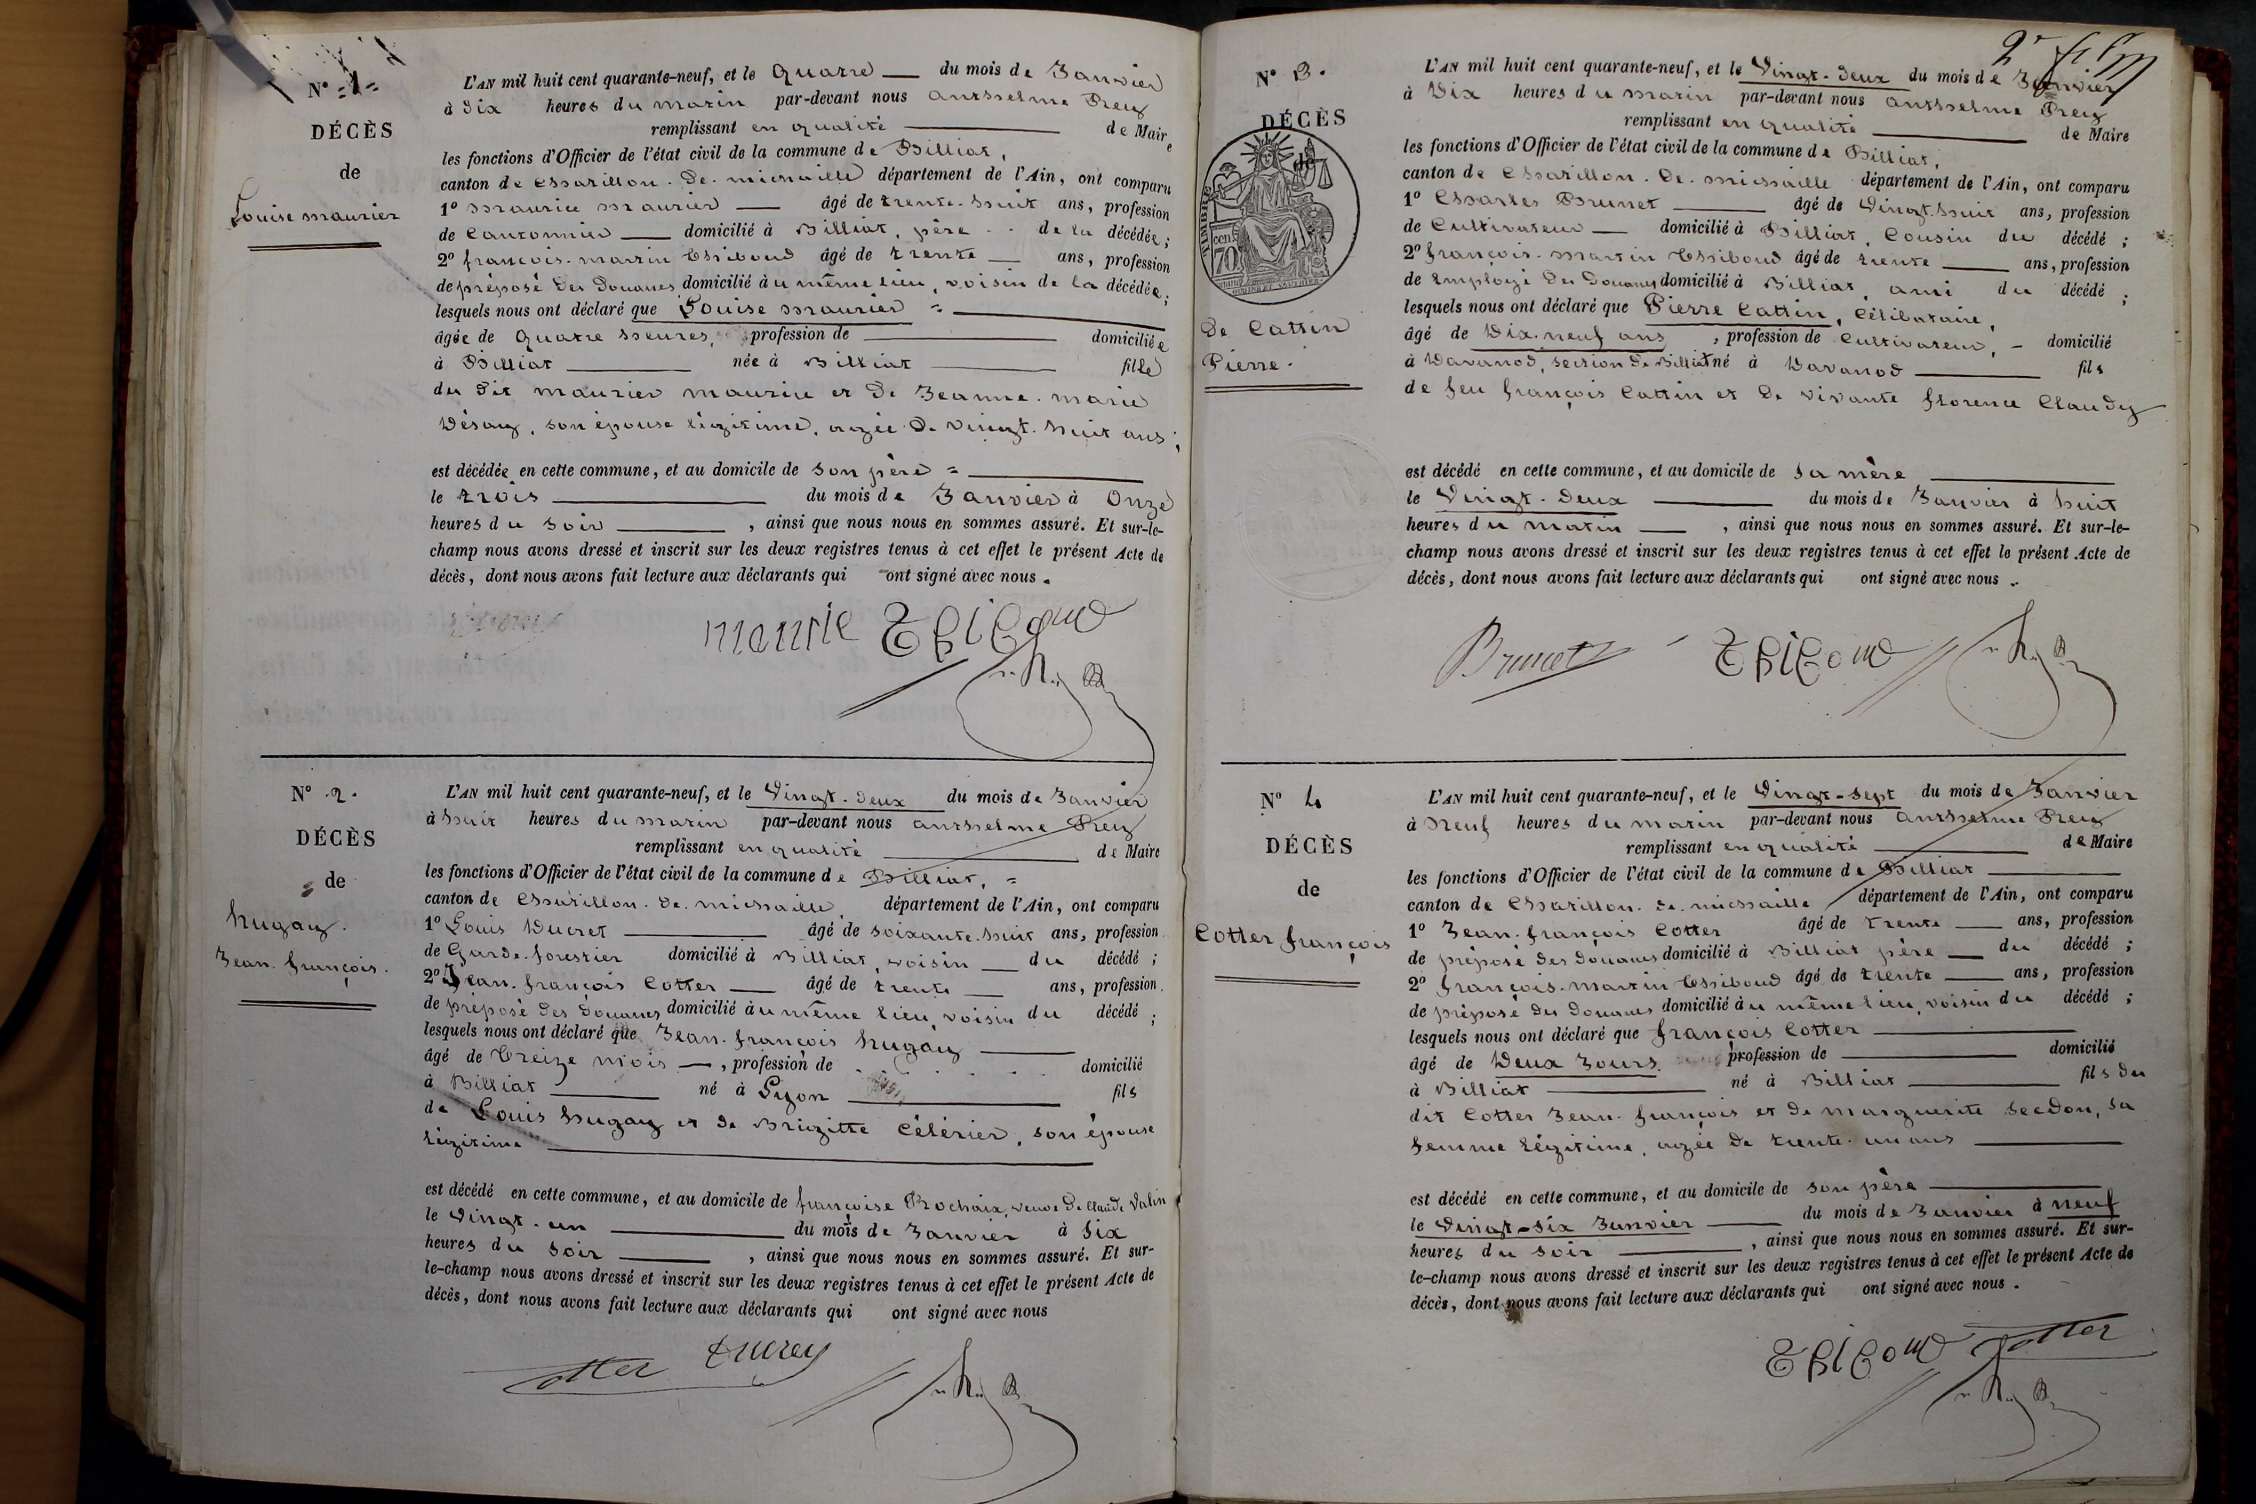 N° 1.
DÉCÈS
de
Louise Maurier
L'AN mil huit cent quarante-neuf, et le quatre du mois de Janvier
à dix heures du matin par-devant nous Anthelme Prey
remplissant en qualité de Maire
les fonctions d'Officier de l'état civil de la commune de Billiat,
canton de Chatillon-de-michaille département de l'Ain, ont comparu
1° Maurice Maurier âgé de trente-huit ans, profession
de Cantonnier domicilié à Billiat, père de la décédée;
2° françois-martin Thiboud âgé de trente ans, profession
de préposé des Douanes domicilié au même lieu, voisin de la décédée;
lesquels nous ont déclaré que Louise Maurier =
âgée de quatre heures, profession de domiciliée
à Billiat née à Billiat fille
du dit maurier maurice et de Jeanne-marie
Désay, son épouse légitime, agée de vingt-huit ans;
est décédée en cette commune, et au domicile de son père =
le trois du mois de Janvier à Onze
heures du soir , ainsi que nous nous en sommes assuré. Et sur-le-
champ nous avons dressé et inscrit sur les deux registres tenus à cet effet le présent Acte de
décès, dont nous avons fait lecture aux déclarants qui ont signé avec nous.
Thiboud
N° 2.
DÉCÈS
de
hugay.
Jean-françois.
L'AN mil huit cent quarante-neuf, et le Vingt-deux du mois de Janvier
à huit heures du matin par-devant nous Anthelme Prey
remplissant en qualité de Maire
les fonctions d'Officier de l'état civil de la commune de Billiat, =
canton de Chatillon-de-michaille, département de l'Ain, ont comparu
1° Louis Ducret âgé de soixante-huit ans, profession
de Garde-forestier domicilié à Billiat, voisin du décédé;
2° Jean-françois Cotter âgé de trente ans, profession
de préposé des Douanes domicilié au même lieu, voisin du décédé;
lesquels nous ont déclaré que Jean-françois hugay
âgé de Treize mois, profession de domicilié
à Billiat né à Lyon fils
de Louis hugay et de Brigitte Célérier, son épouse
légitime
est décédé en cette commune, et au domicile de françoise Rochaix, veuve de Claude
le Vingt-un du mois de Janvier à Six
heures du Soir , ainsi que nous nous en sommes assuré. Et sur-
le-champ nous avons dressé et inscrit sur les deux registres tenus à cet effet le présent Acte de
décès, dont nous avons fait lecture aux déclarants qui ont signé avec nous
Cotter
N° 3.
DÉCÈS
de
TIMBRE
70
De Cattin
Pierre.
L'AN mil huit cent quarante-neuf, et le Vingt-deux du mois de Janvier
à Dix heures du matin par-devant nous Anthelme Prey
remplissant en qualité de Maire
les fonctions d'Officier de l'état civil de la commune de Billiat,
canton de Chatillon-de-michaille département de l'Ain, ont comparu
1° Charles Brunet âgé de Vingt-huit ans, profession
de Cultivateur domicilié à Billiat, Cousin du décédé;
2° françois-martin Thiboud âgé de trente ans, profession
de Employé des Douanes domicilié à Billiat, ami du décédé;
lesquels nous ont déclaré que Pierre Cattin, Célibataire,
âgé de Dix-neuf ans, profession de Cultivateur, domicilié
à Davanod, section de Billiat né à Davanod fils
de feu françois Cattin et de vivante florence Claudy
est décédé en cette commune, et au domicile de sa mère
le Vingt-deux du mois de Janvier à huit
heures du matin , ainsi que nous nous en sommes assuré. Et sur-le-
champ nous avons dressé et inscrit sur les deux registres tenus à cet effet le présent Acte de
décès, dont nous avons fait lecture aux déclarants qui ont signé avec nous.
Brunet Thiboud
N° 4
DÉCÈS
de
Cotter françois
L'AN mil huit cent quarante-neuf, et le Vingt-sept du mois de Janvier
à Neuf heures du matin par-devant nous Anthelme Prey
remplissant en qualité de Maire
les fonctions d'Officier de l'état civil de la commune de Billiat
canton de Chatillon-de-michaille département de l'Ain, ont comparu
1° Jean-françois Cotter âgé de trente ans, profession
de préposé des Douanes domicilié à Billiat père du décédé;
2° françois-martin Thiboud âgé de trente ans, profession
de préposé des Douanes domicilié au même lieu, voisin du décédé;
lesquels nous ont déclaré que françois Cotter
âgé de Deux Jours profession de domicilié
à Billiat né à Billiat fils du
dit Cotter Jean-françois et de marguerite Secdon, sa
femme légitime, agée de trente-un ans
est décédé en cette commune, et au domicile de son père
le Vingt-six Janvier du mois de Janvier à neuf
heures du soir , ainsi que nous nous en sommes assuré. Et sur-
le-champ nous avons dressé et inscrit sur les deux registres tenus à cet effet le présent Acte de
décès, dont nous avons fait lecture aux déclarants qui ont signé avec nous.
Thiboud Cotter